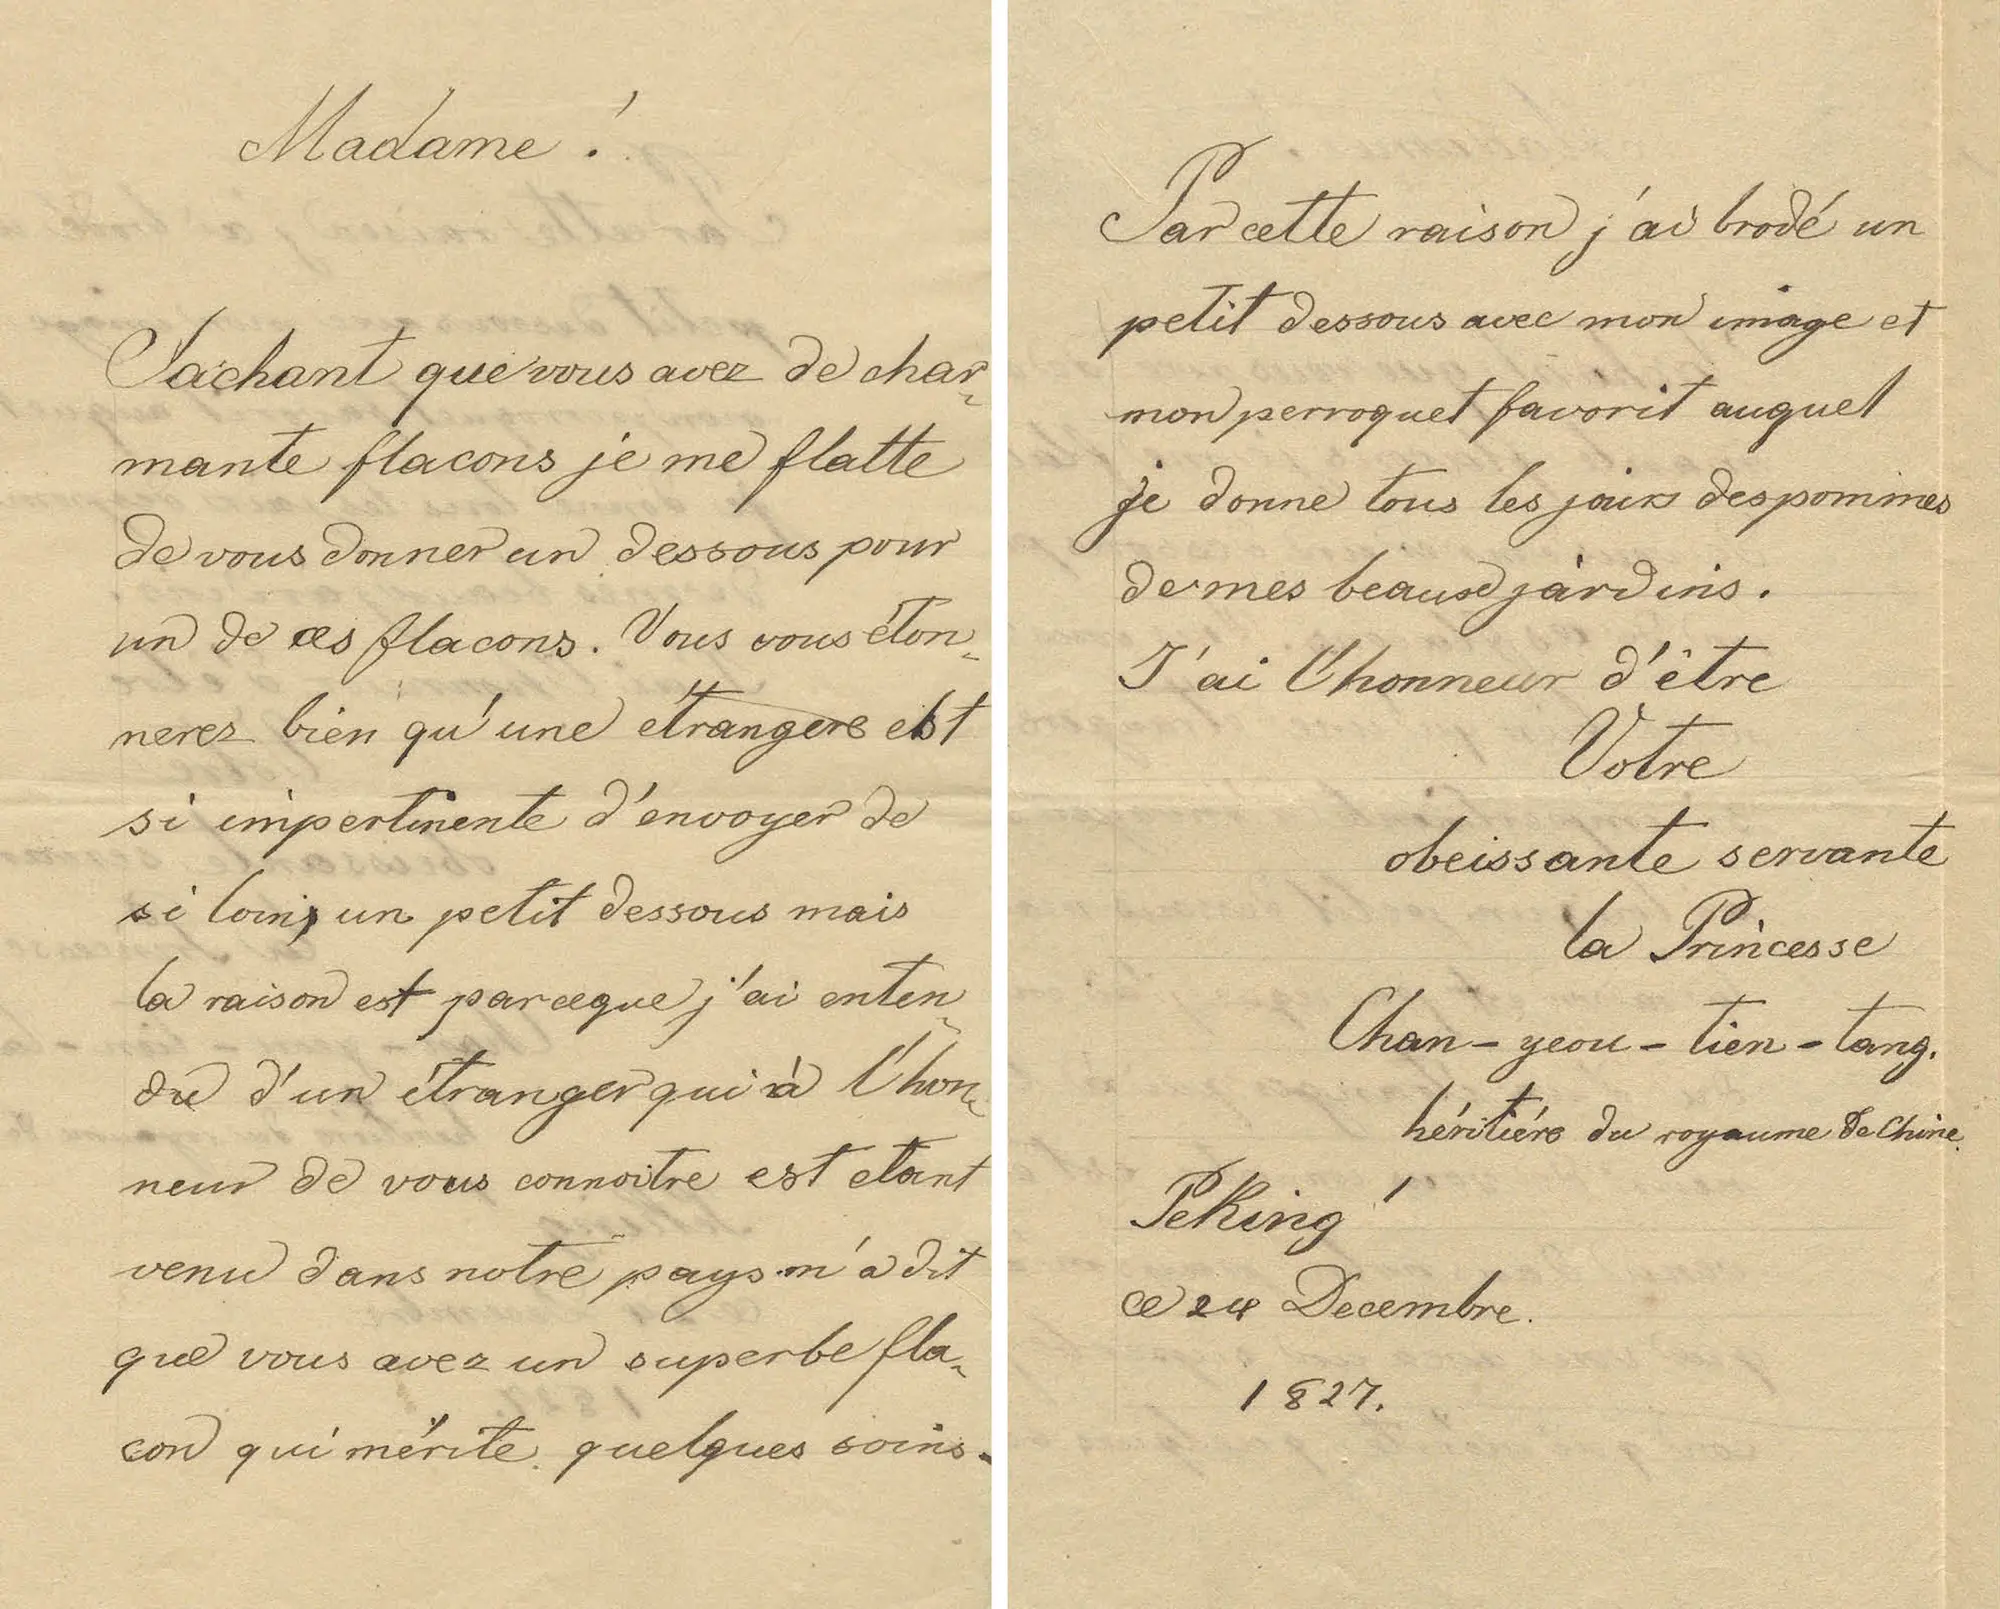 Madame!
Sachant que vous avez de char-
mante flacons je me flatte
de vous donner un dessous pour
un de ces flacons. Vous vous éton-
nerez bien qu'une étrangere est
si impertinente d'envoyer de
si loin, un petit dessous mais
la raison est parceque j'ai enten-
du d'un étranger qui à l'hon-
neur de vous connoitre est etant
venu dans notre pays m'a dit
que vous avez un superbe fla-
con qui mérite quelques soins.
Par cette raison j'ai brodé un
petit dessous avec mon image et
mon perroquet favorit auquel
je donne tous les jours des pommes
de mes beaux jardins.
J'ai l'honneur d'être
Votre
obeissante servante
la Princesse
Chan-yeou-tien-tang.
héritiére du royaume de Chine.
Peking!
ce 24 Decembre.
1827.